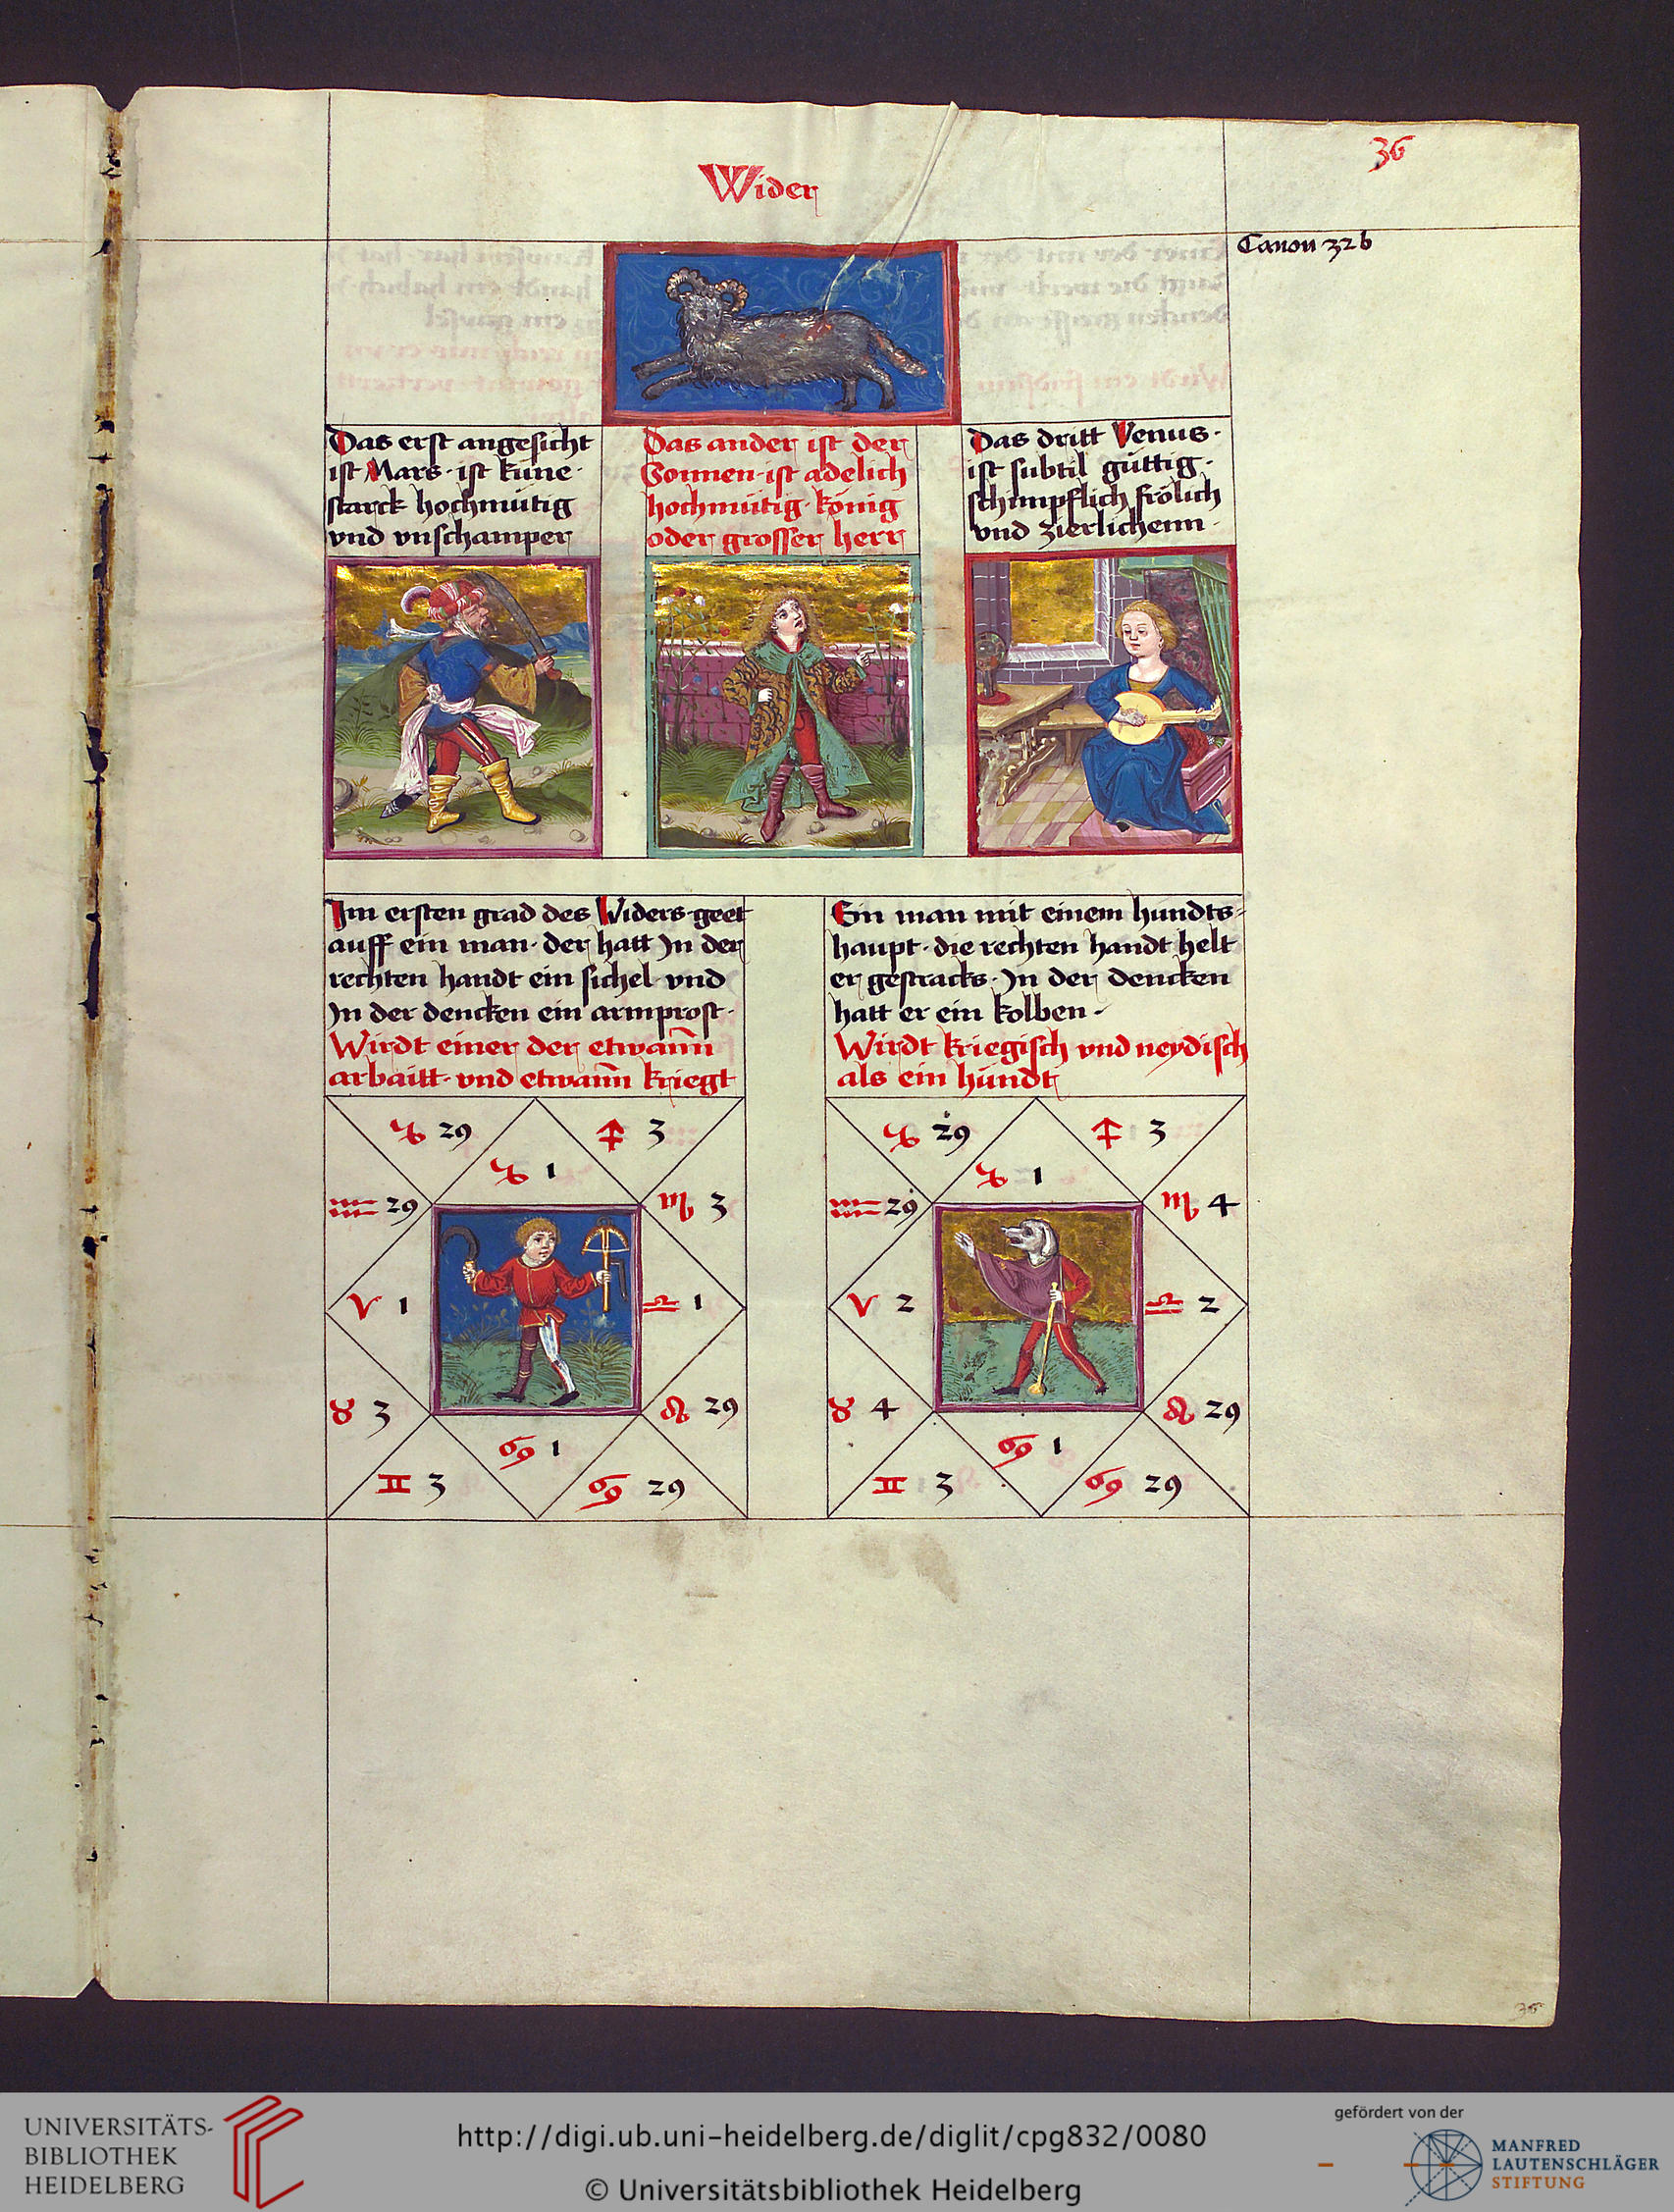 36
Wider
Canon 32 b
Das erst angesicht
ist Mars · ist küne ·
starck hochmütig
vnd vnschamper
Das ander ist der
Sonnen · ist adelich
hochmütig · könig
oder grosser herr
Das dritt Venus ·
ist subtil güttig ·
schimpflich frölich
vnd zierlichenn ·
Im ersten grad des Widers · geet
auff ein man · der hatt In der
rechten handt ein sichel vnd
In der dencken ein armprost ·
Wirdt einer der etwann̄
arbaitt · vnd etwann̄ kriegt
Ein man mit einem hundts-
haupt · die rechten handt helt
er gestracks · In der dencken
hatt er ein kolben ·
Wirdt kriegisch vnd neydisch
als ein hundt
♑ 29
♐ 3
♑ 1
♒ 29
♏ 3
♈ 1
♎ 1
♉ 3
♌ 29
♋ 1
♊ 3
♋ 29
♑ 29
♐ 3
♑ 1
♒ 29
♏ 4
♈ 2
♎ 2
♉ 4
♌ 29
♋ 1
♊ 3
♋ 29
36
UNIVERSITÄTS-
BIBLIOTHEK
HEIDELBERG
http://digi.ub.uni-heidelberg.de/diglit/cpg832/0080
© Universitätsbibliothek Heidelberg
gefördert von der
MANFRED
LAUTENSCHLÄGER
STIFTUNG